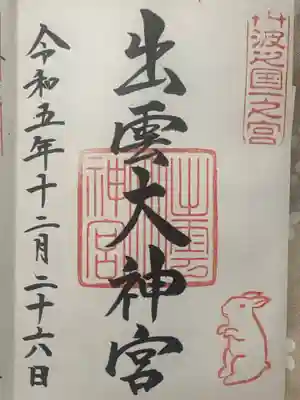 丹波國一之宮
出雲大神宮
出雲神宮
令和五年十二月二十六日